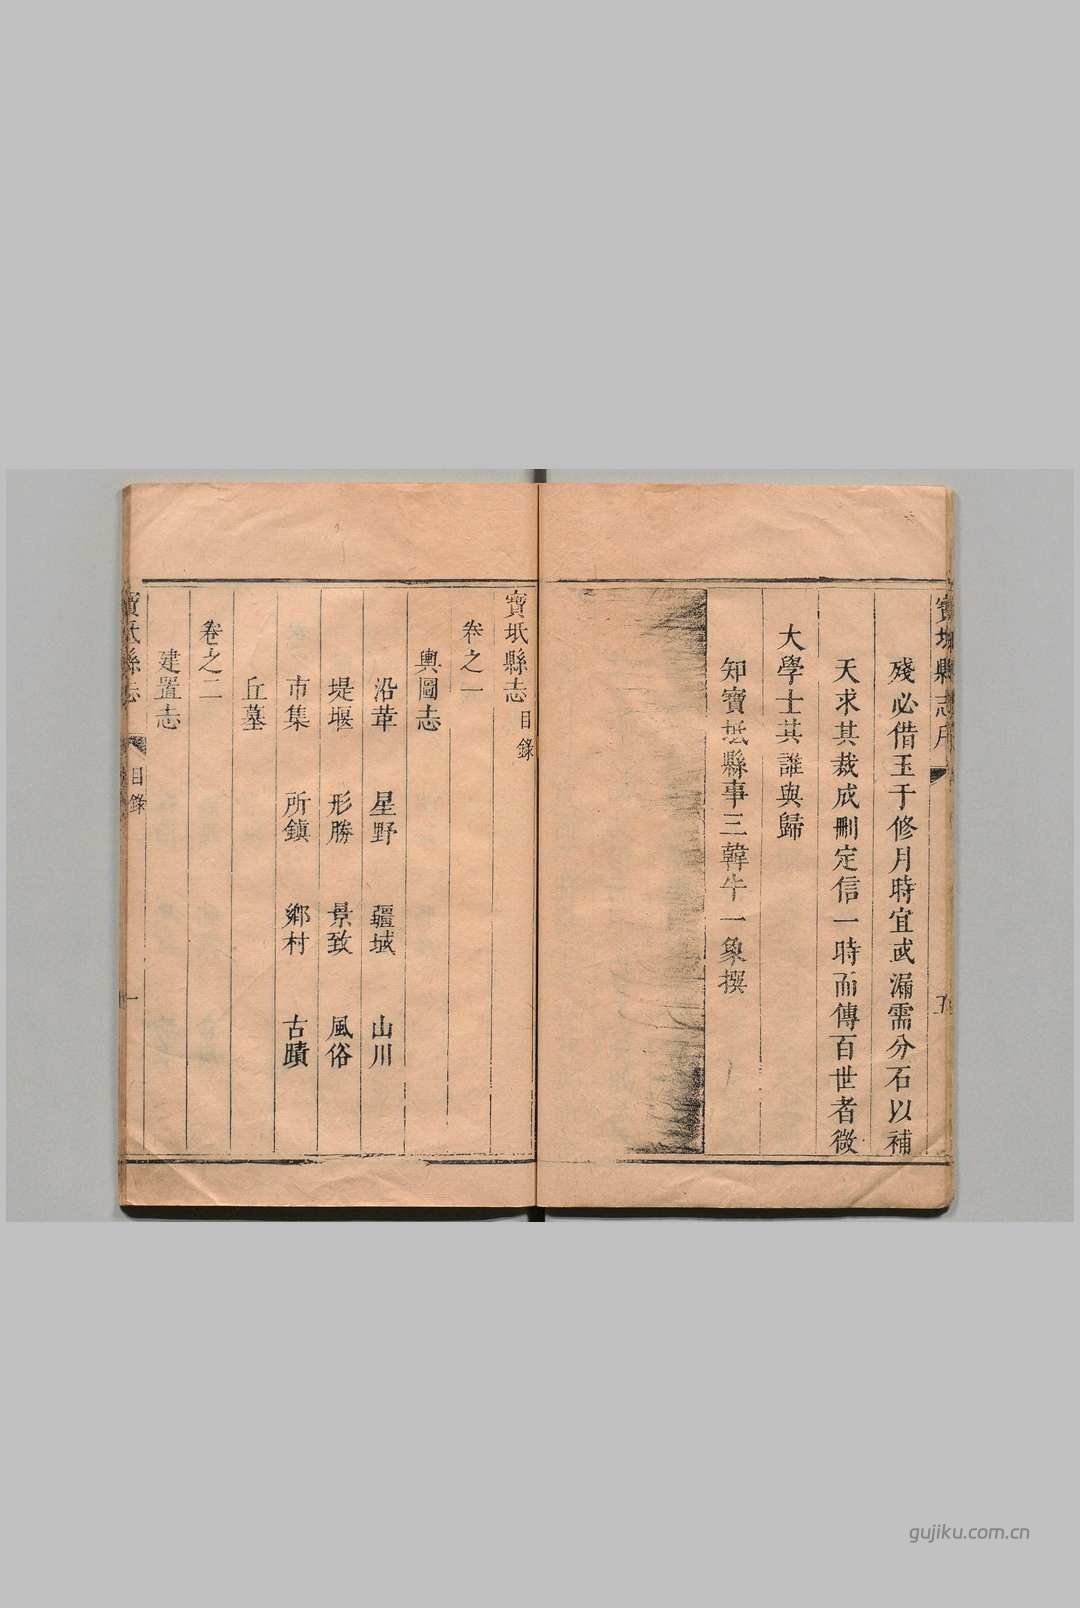 寶坻縣志序
殘必借玉于修月時宜或漏需分石以補
天求其裁成刪定信一時而傳百世者微
大學士其誰與歸
知寶坻縣事三韓牛一象撰
寶坻縣志目錄
卷之一
輿圖志
沿革 星野 疆域 山川
堤堰 形勝 景致 風俗
市集 所鎮 鄉村 古蹟
丘墓
卷之二
建置志
寶坻縣志 目錄 一
gujiku.com.cn